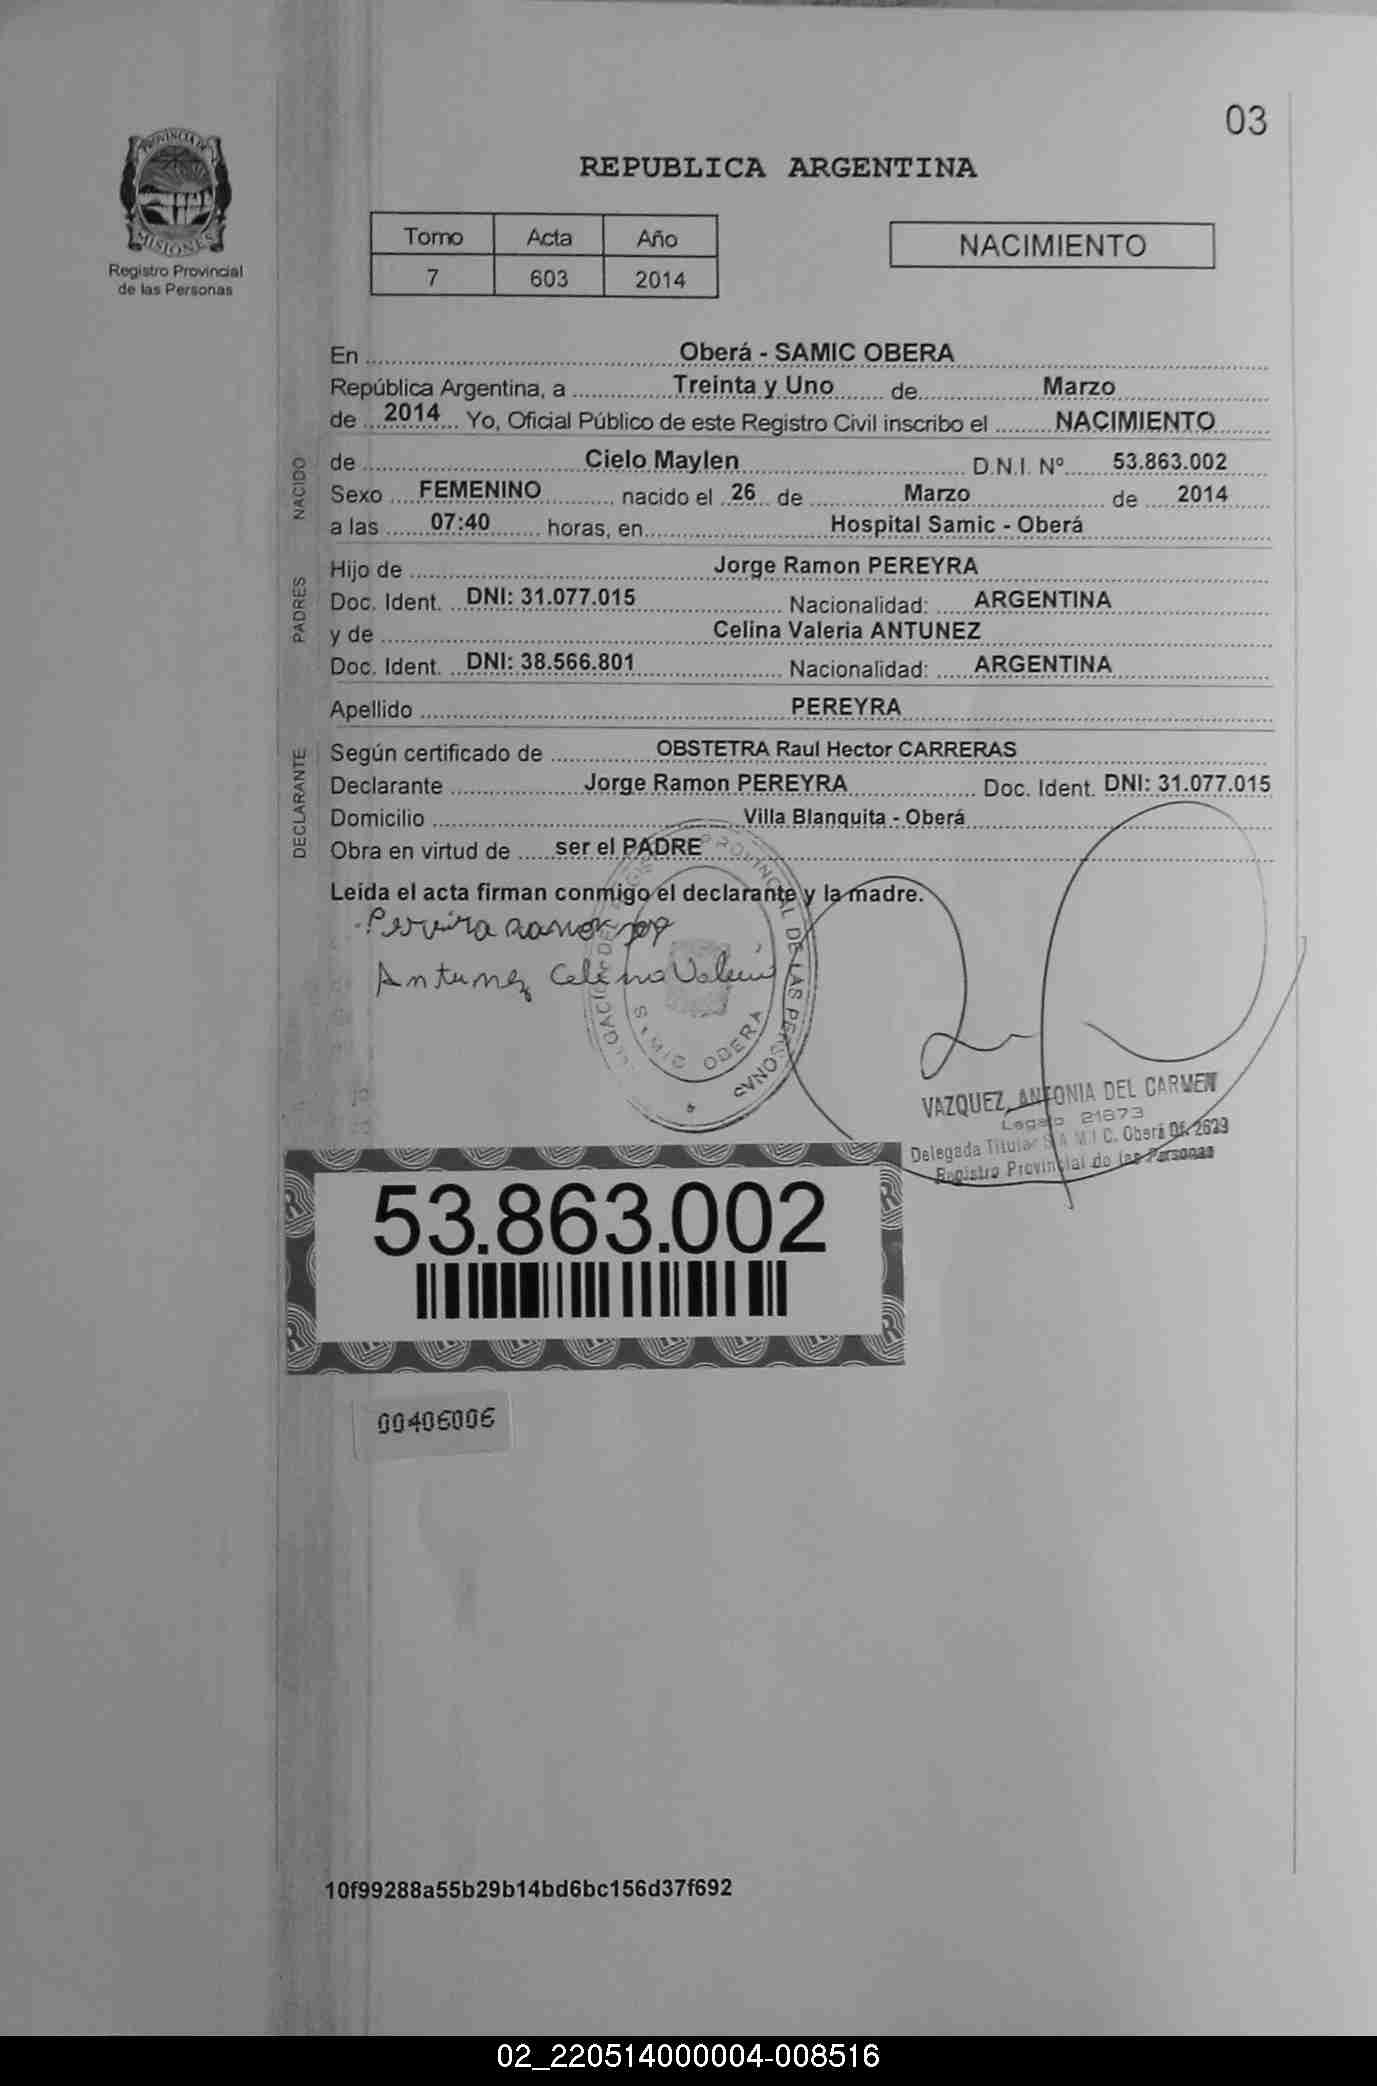 03
PROVINCIA DE
MISIONES
Registro Provincial
de las Personas
REPUBLICA ARGENTINA
Tomo Acta Año
7 603 2014
NACIMIENTO
En Oberá - SAMIC OBERA
República Argentina, a Treinta y Uno de Marzo
de 2014 Yo, Oficial Público de este Registro Civil inscribo el NACIMIENTO
NACIDO
de Cielo Maylen D.N.I. Nº 53.863.002
Sexo FEMENINO nacido el 26 de Marzo de 2014
a las 07:40 horas, en Hospital Samic - Oberá
PADRES
Hijo de Jorge Ramon PEREYRA
Doc. Ident. DNI: 31.077.015 Nacionalidad: ARGENTINA
y de Celina Valeria ANTUNEZ
Doc. Ident. DNI: 38.566.801 Nacionalidad: ARGENTINA
Apellido PEREYRA
DECLARANTE
Según certificado de OBSTETRA Raul Hector CARRERAS
Declarante Jorge Ramon PEREYRA Doc. Ident. DNI: 31.077.015
Domicilio Villa Blanquita - Oberá
Obra en virtud de ser el PADRE
Leida el acta firman conmigo el declarante y la madre.
Antunez Celina Valeria
PROVINCIAL DE LAS PERSONAS
SAMIC OBERA
VAZQUEZ, ANTONIA DEL CARMEN
Legajo 21873
Delegada Titular S.A.M.I.C. Oberá Of. 2629
Registro Provincial de las Personas
53.863.002
00406006
10f99288a55b29b14bd6bc156d37f692
02_220514000004-008516